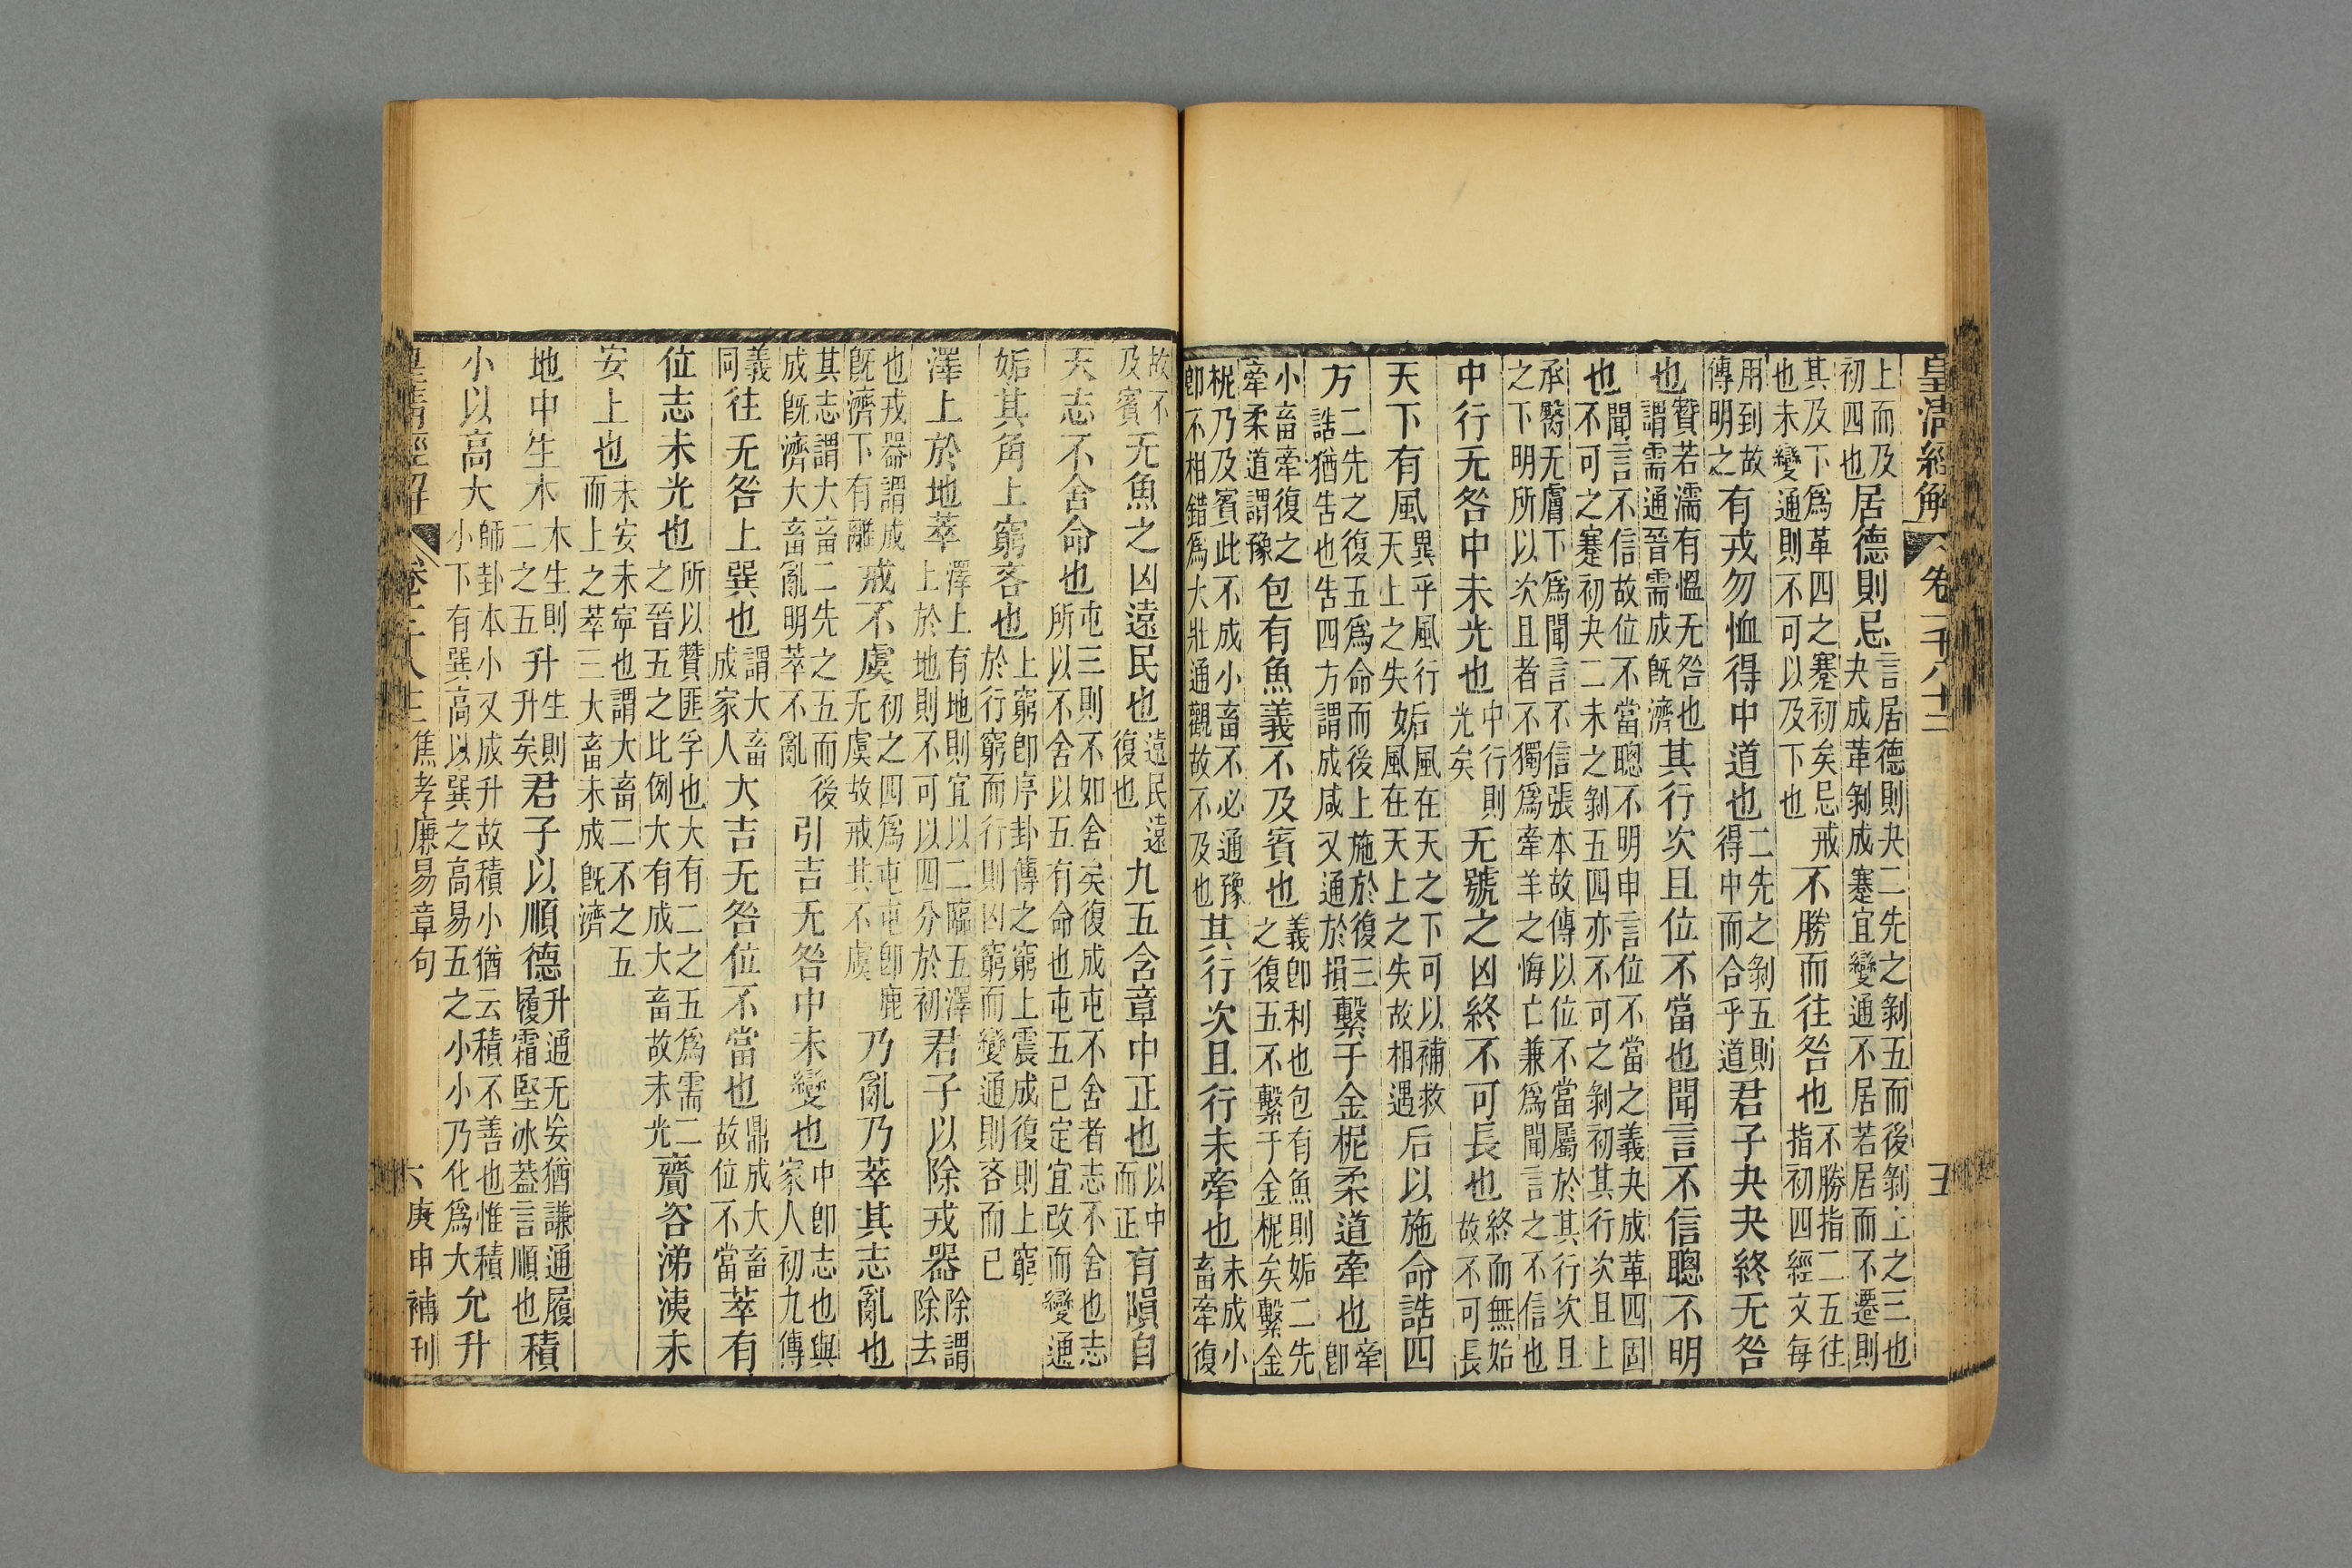 皇清經解 卷一千八十三 五
上而及初四也居德則忌言居德則夬二先之剝五而後剝上之三也夬成革剝成蹇宜變通不居若居而不遷則
其及下爲革四之蹇初矣忌戒也未變通則不可以及下也不勝而往咎也不勝指二五往指初四經文每
用到故傳明之有戎勿恤得中道也二先之剝五則得中而合乎道君子夬夬終无咎
也贊若濡有慍无咎也謂需通晉需成旣濟其行次且位不當也聞言不信聰不明
也聞言不信故位不當聰不明申言位不當之義夬成革四固不可之蹇初夬二未之剝五四亦不可之剝初其行次且上
承臀无膚下爲聞言不信張本故傳以位不當屬於其行次且之下明所以次且者不獨爲牽羊之悔亡兼爲聞言之不信也
中行无咎中未光也中行則光矣无號之凶終不可長也終而無始故不可長
天下有風異乎風行天上之失姤后風在天之下可以補救風在天上之失故相遇后以施命誥四
方二先之復五爲命而後上施於復三誥猶告也告四方謂成咸又通於損繫于金柅柔道牽也牽卽
小畜牽復之牽柔道謂豫包有魚義不及賓也義卽利也包有魚則姤二先之復五不繫于金柅矣繫金
柅乃及賓此不成小畜不必通豫卽不相錯爲大壯通觀故不及也其行次且行未牽也未成小畜牽復
故不及賓无魚之凶遠民也遠民遠復也九五含章中正也以中而正有隕自
天志不舍命也屯三則不如舍矣復成屯不舍者志不舍也志所以不舍以五有命也屯五已定宜改而變通
姤其角上窮吝也上窮卽序卦傳之窮上震成復則上窮於行窮而行則凶窮而變通則吝而已
澤上於地萃澤上有地則宜以二臨五澤上於地則不可以四分於初君子以除戎器除謂除去
也戎器謂成旣濟下有離戒不虞初之四爲屯屯卽鹿无虞故戒其不虞乃亂乃萃其志亂也
其志謂大畜二先之五而後成旣濟大畜亂明萃不亂引吉无咎中未變也中卽志也與家人初九傳
義同往无咎上巽也謂大畜成家人大吉无咎位不當也鼎成大畜故位不當萃有
位志未光也所以贊匪孚也大有二之五爲需二之晉五之比例大有成大畜故未光齎咨涕洟未
安上也未安未寧也謂大畜二不之五而上之萃三大畜未成旣濟
地中生木木生則升生則二之五升升矣君子以順德升通无妄猶謙通履履霜堅冰蓋言順也積
小以高大師卦本小又成升故積小猶云積不善也惟積小下有巽高以巽之高易五之小小乃化爲大允升
皇清經解 卷一千八十三 焦孝廉易章句 六 庚申補刊